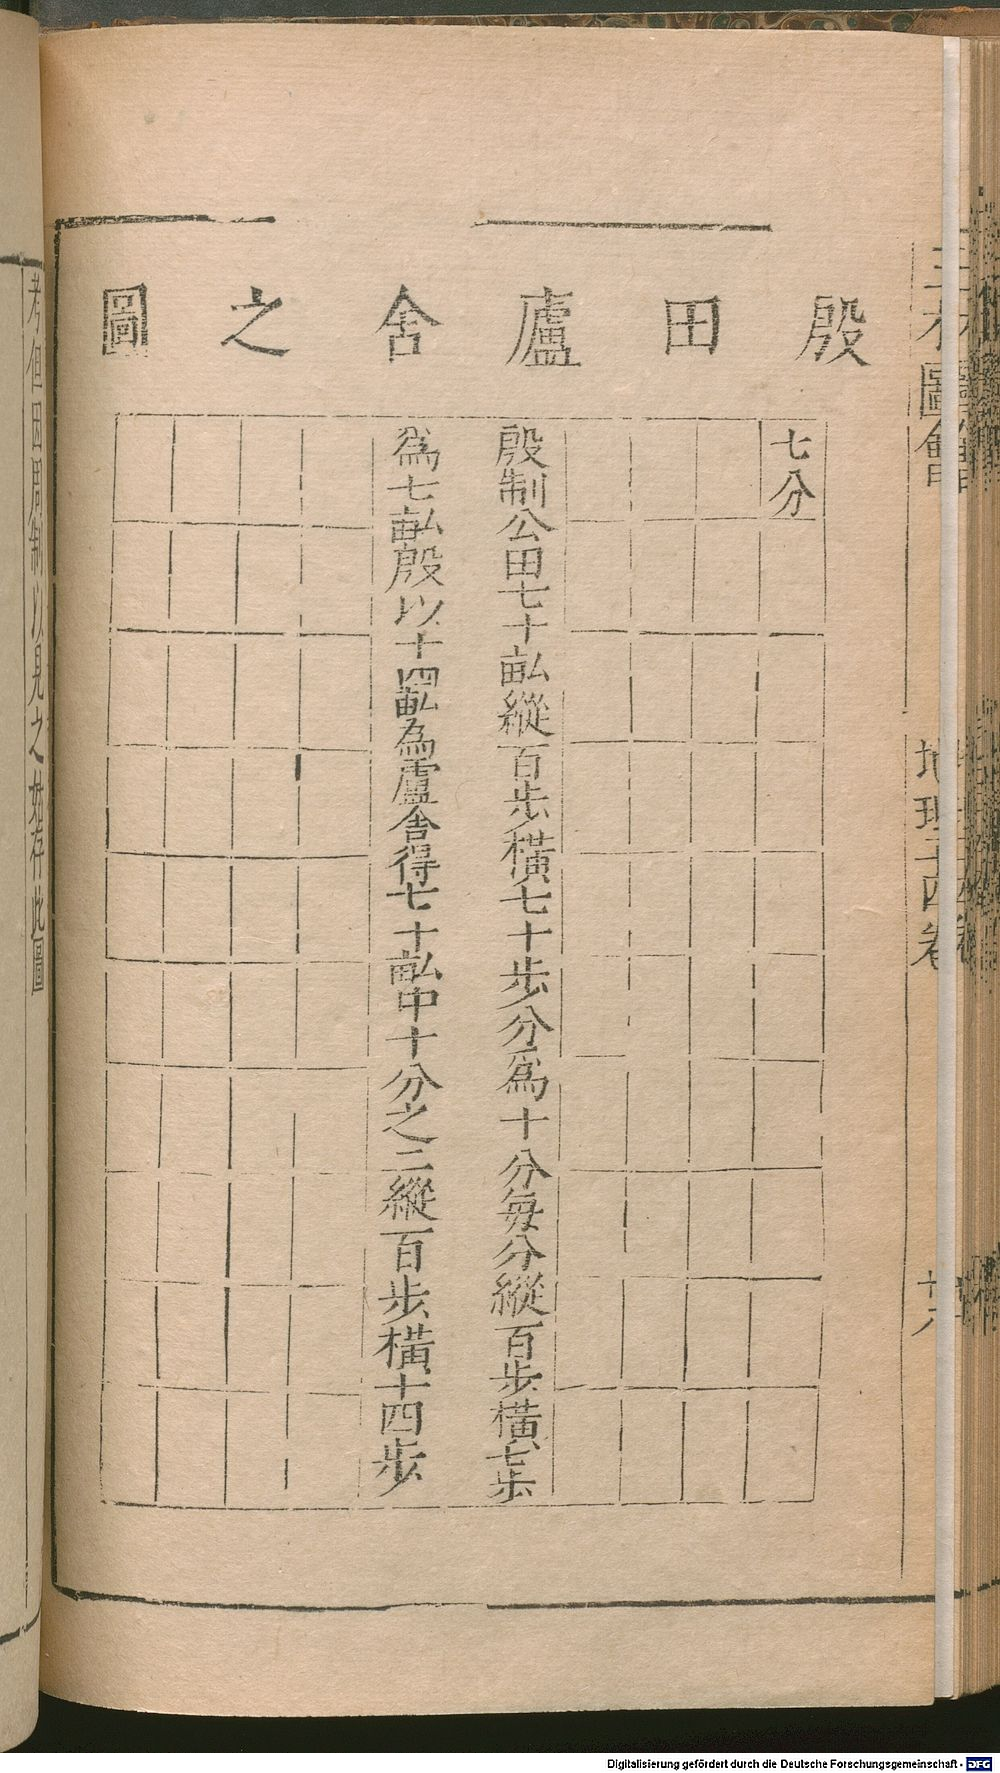 殷田廬舍之圖
七分
殷制公田七十畝縱百步橫七十步分爲十分每分縱百步橫七步
爲七畝殷以十四畝為廬舍得七十畝中十分之二縱百步橫十四步
三才圖會
地理十四卷
考但因周制以見之姑存此圖
Digitalisierung gefördert durch die Deutsche Forschungsgemeinschaft - DFG